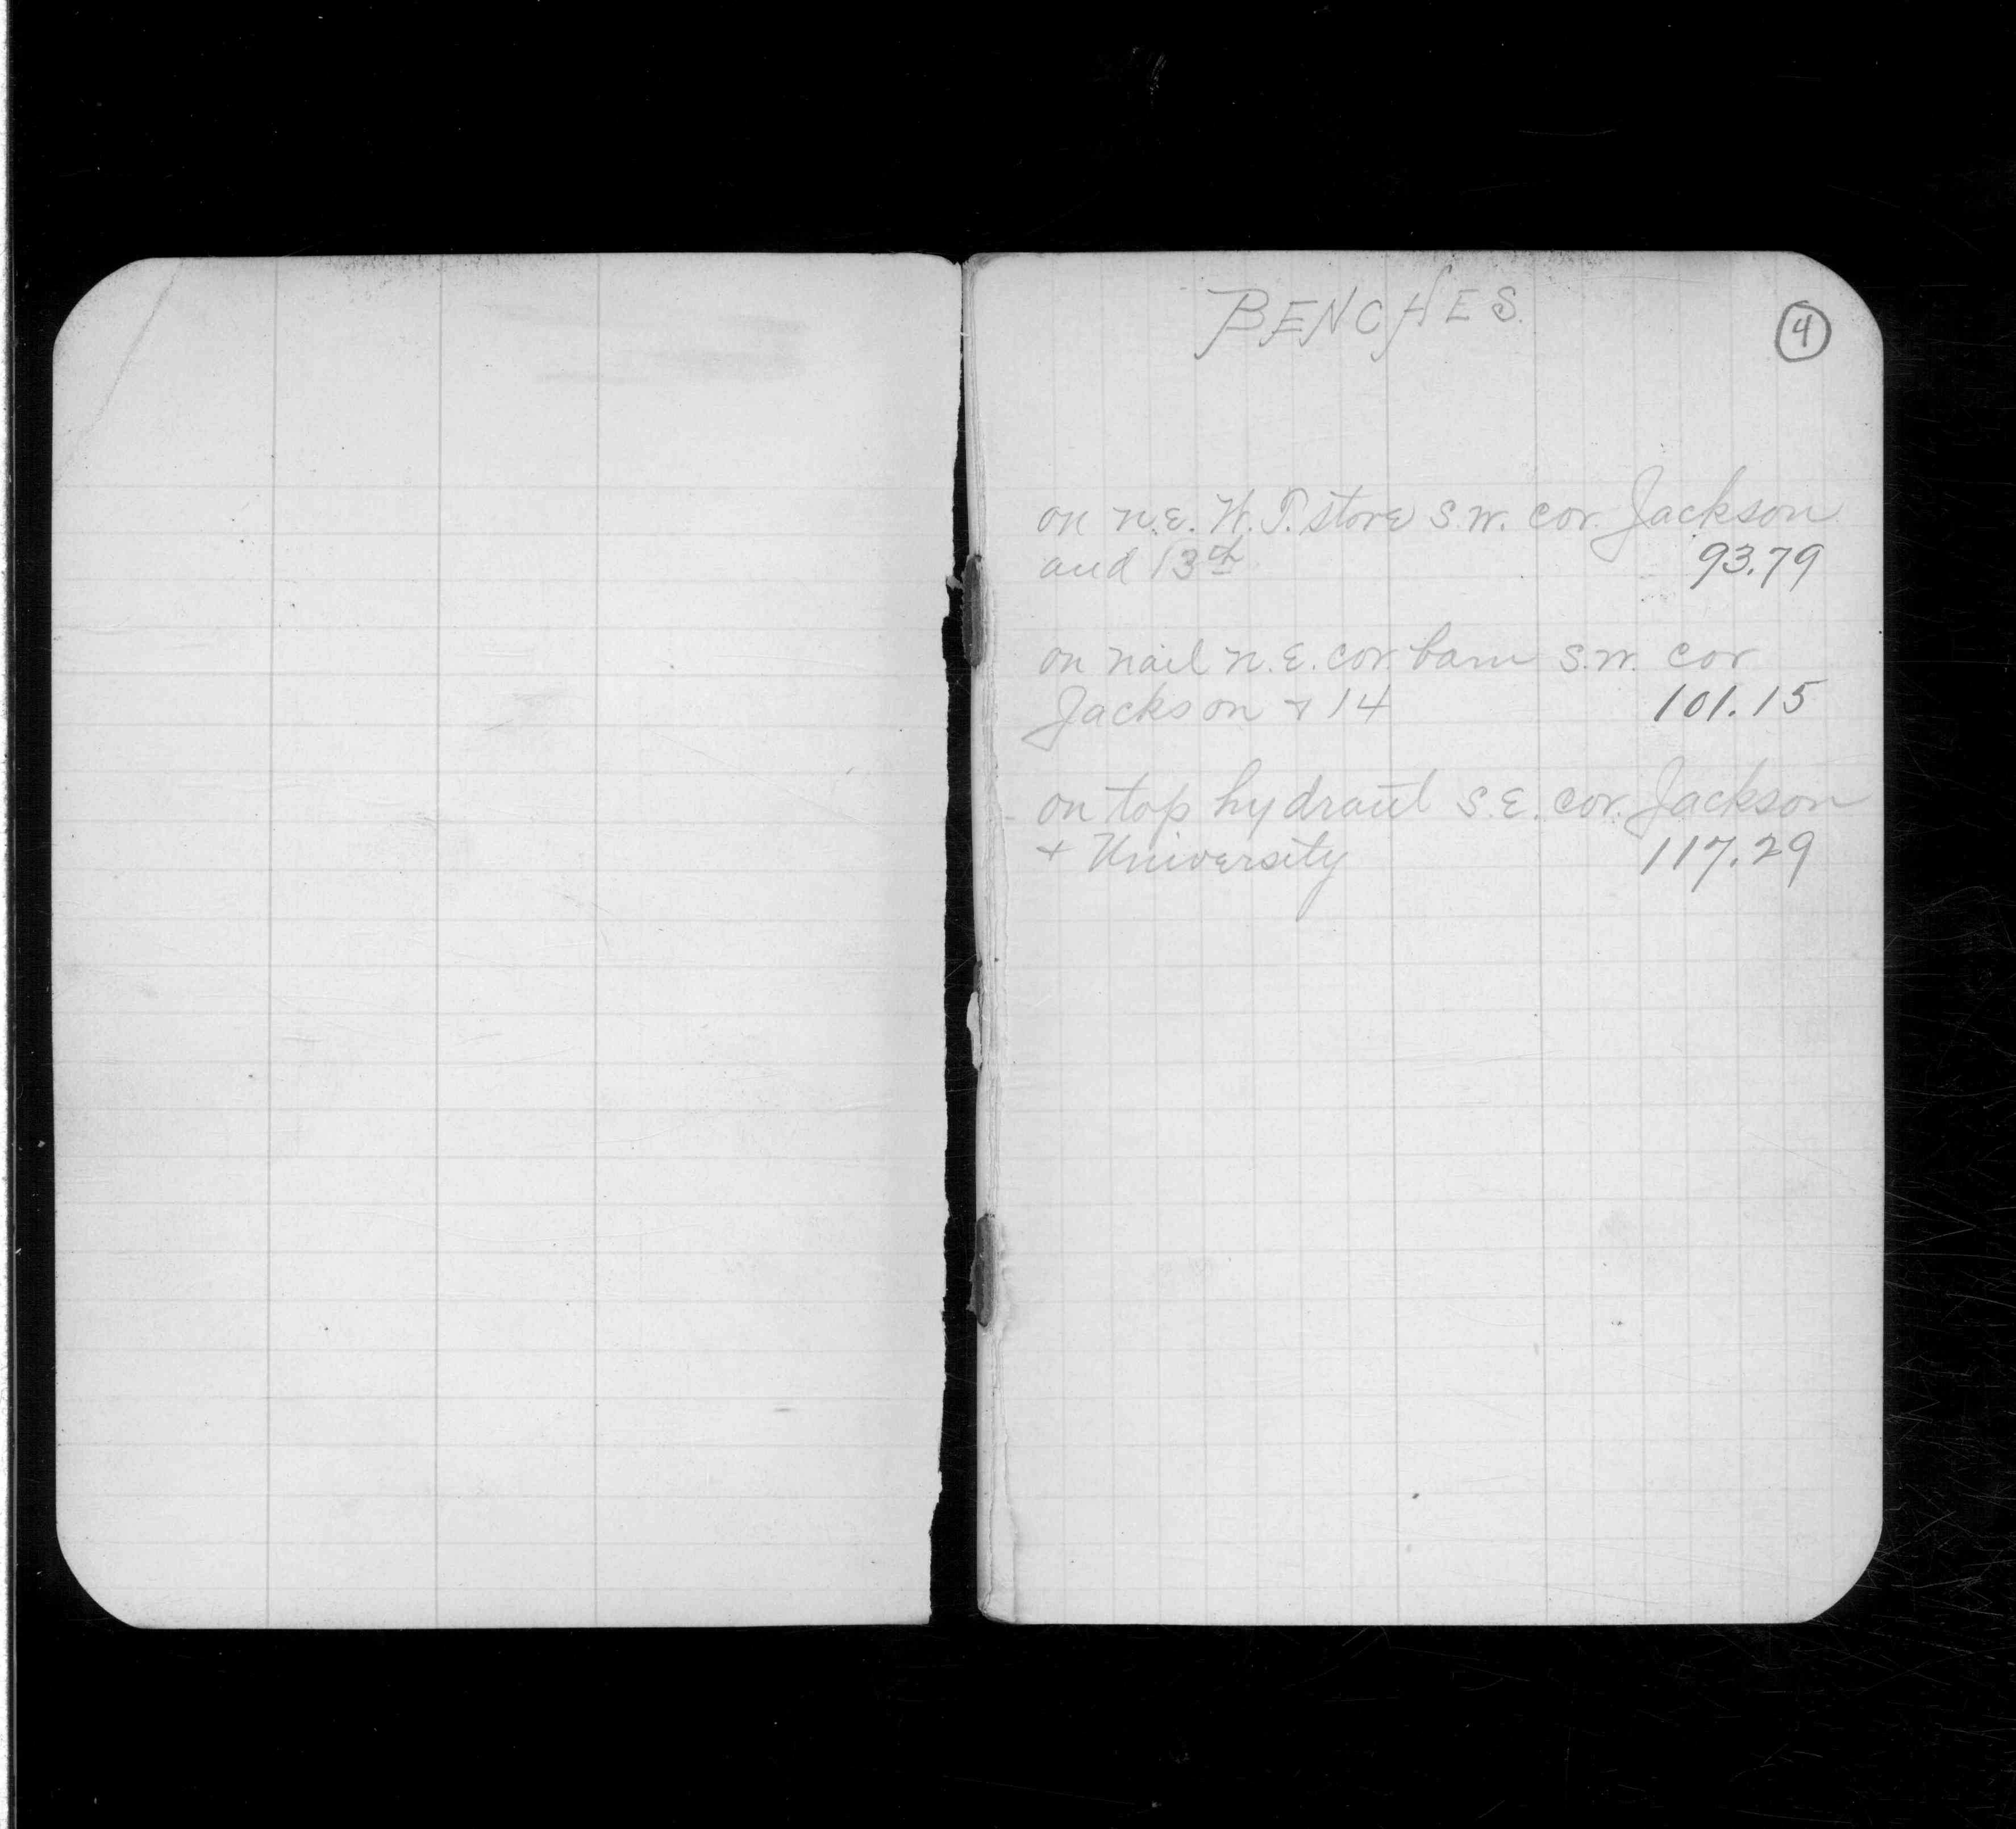 BENCHES.
4
on N.E. W.T. store S.W. cor. Jackson
and 13th 93.79
on nail N.E. cor. barn S.W. cor
Jackson + 14 101.15
on top hydrant S.E. cor. Jackson
+ University 117.29